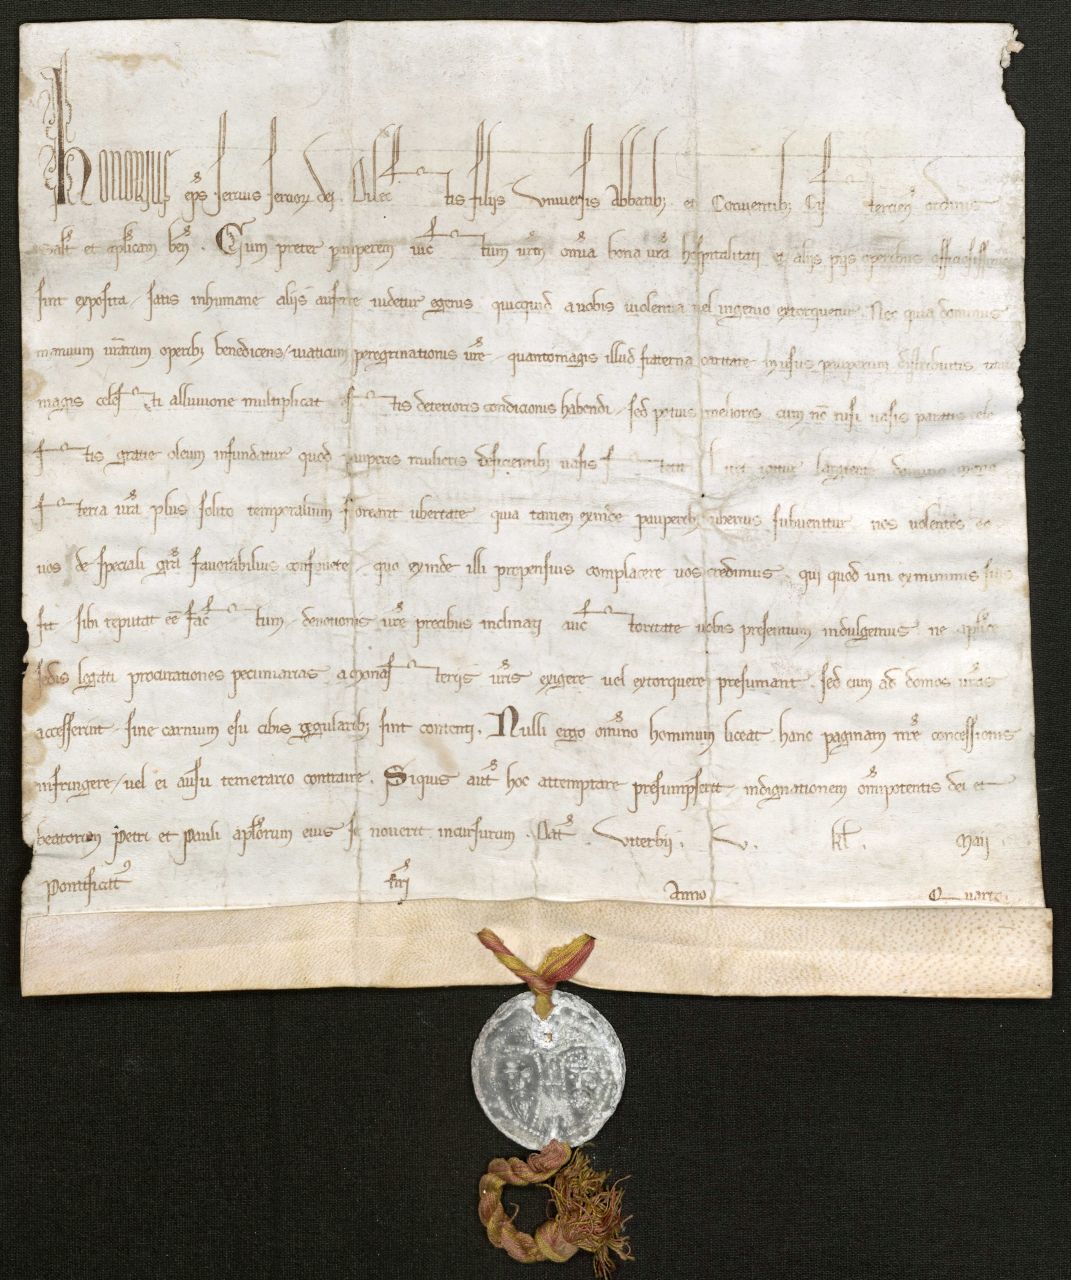 Honorius eps seruus seruor dei. Dilectis filijs Vniuersis Abbatib; et Conuentib; Cisterciens ordinis
Salt et aplicam ben. Cum preter pauperem uictum urm omia bona ura hospitalitati et alijs pijs operibus officiosissime
sint exposita satis inhumane alijs auferre uidetur egenis quicquid a uobis uiolentia uel ingenio extorquetur. Nec quia dominus
manuum urarum operib; benedicens uiaticum peregrinationis ure quantomagis illud fraterna caritate in usus pauperum distribuitis
magis celesti alluuione multiplicat estis deterioris condicionis habendi sed potius melioris cum non nisi uasis paratis
gratie oleum infundatur quod pauperis mulieris deficientib; uasis stetit Licet igitur largiente domino
terra ura plus solito temporalium floreant ubertate quia tamen exinde pauperib; uberius subuenitur nos uolentes
uos de speciali gra fauorabilius confouere quo exinde illi propensius complacere nos credimus qui quod uni ex minimis suis
fit sibi reputat ee factum deuotionis ure precibus inclinati auctoritate uobis presentium indulgemus ne aplice
sedis legati procurationes pecuniarias a monasterijs uris exigere uel extorquere presumant. sed cum ad domos uras
accesserint sine carnium esu cibis regularib; sint contenti. Nulli ergo omino hominum liceat hanc paginam nre concessionis
infringere uel ei ausu temerario contraire. Siquis aut hoc attemptare presumpserit indignationem omipotentis dei et
beatorum Petri et Pauli aplorum eius se nouerit incursurum. Dat Viterbij. V. kl. Maij
Pontificat nri Anno Quarto.